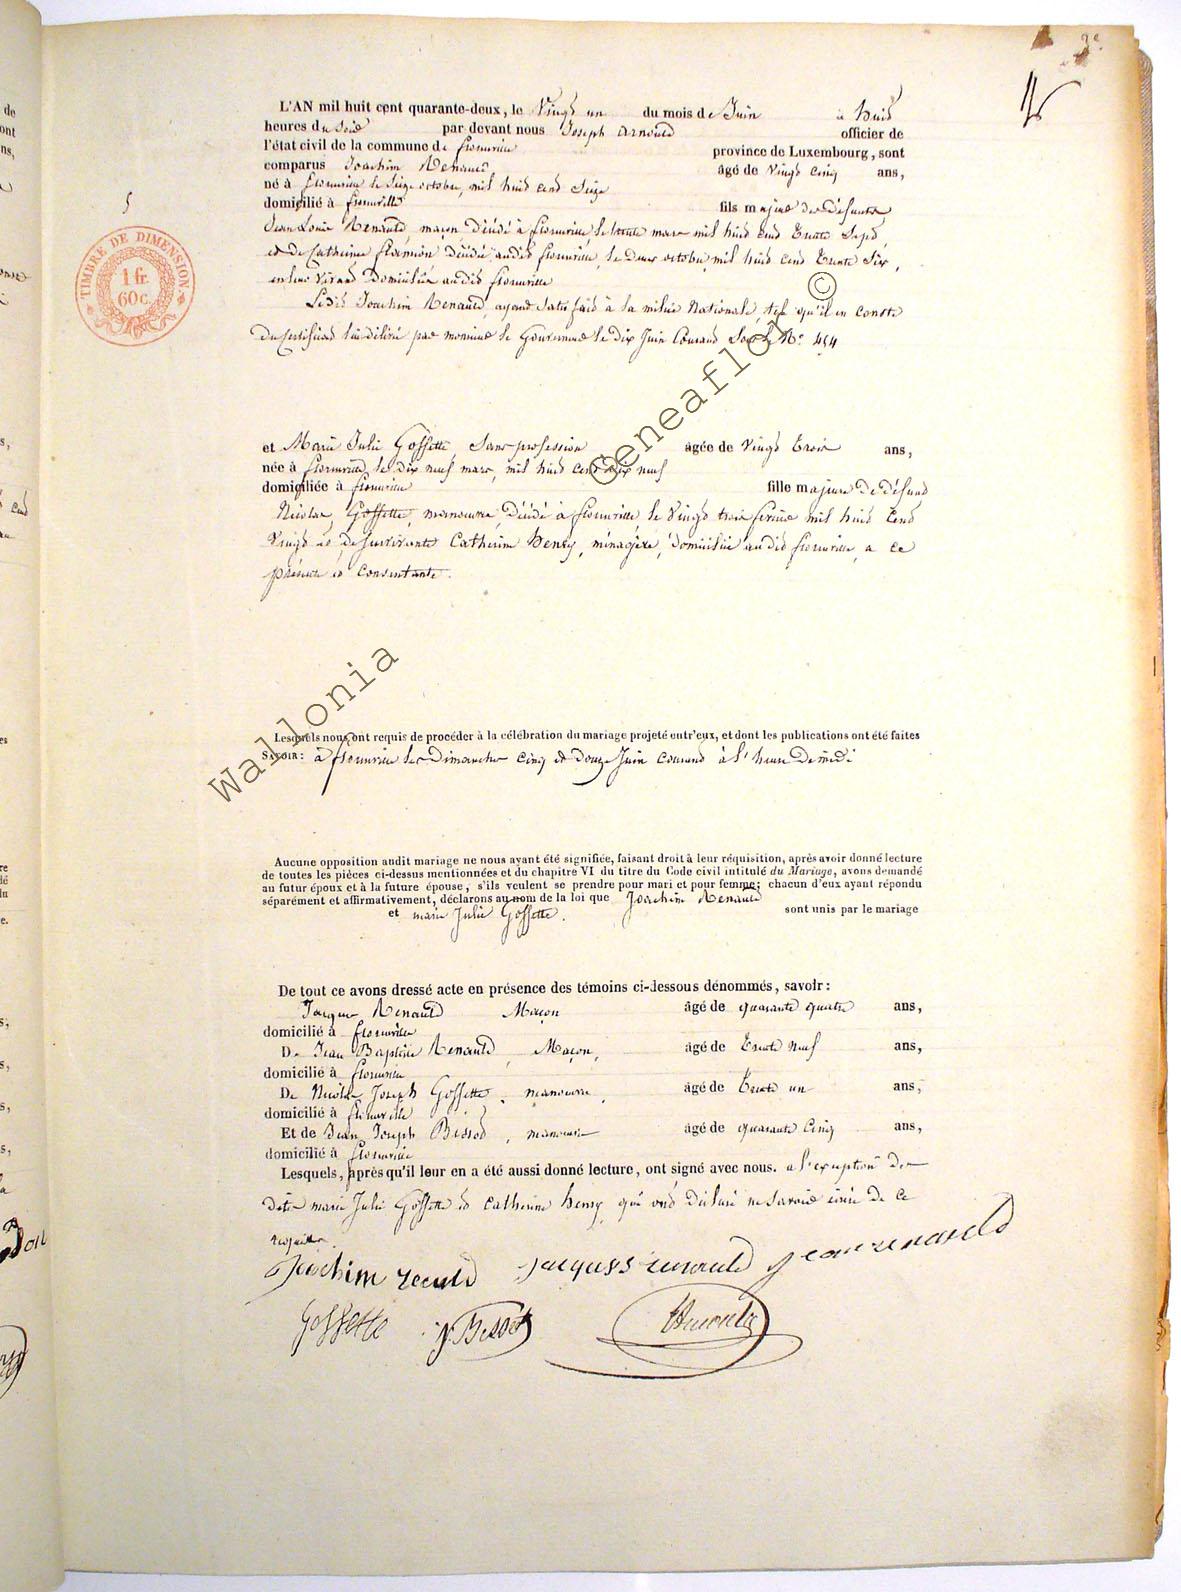 L'AN mil huit cent quarante-deux, le Vingt un du mois de Juin à huit
heures du Soir par devant nous Joseph Arnould officier de
l'état civil de la commune de florenville province de Luxembourg, sont
comparus Joachim Renauld âgé de vingt cinq ans,
né à florenville le Seize octobre, mil huit cent Seize
domicilié à florenville fils majeur de défunts
Jean Louis Renauld, maçon décédé à florenville le trente mars mil huit cent trente Sept,
et de Catherine décédée audit florenville, le deux octobre, mil huit cent trente Six,
en leur vivant domiciliés audit florenville
Ledit Joachim Renauld, ayant Satisfait à la milice Nationale, tel qu'il en conste
du certificat lui délivré par monsieur le Gouverneur le dix Juin Courant Sous le No. 454
et Marie Julie Goffette, Sans profession âgée de vingt trois ans,
née à florenville, le dix neuf mars, mil huit cent dix neuf
domiciliée à florenville fille majeure de défunt
Nicolas, Goffette, manoeuvre, décédé à florenville le vingt trois février mil huit Cent
Vingt et de Survivante Catherine Henry, ménagère, domiciliée audit florenville, a ce
présente et consentante.
Lesquels nous ont requis de procéder à la célébration du mariage projeté entr'eux, et dont les publications ont été faites
SAVOIR: à florenville les Dimanches cinq et douze Juin courant à l'heure de midi
Aucune opposition audit mariage ne nous ayant été signifiée, faisant droit à leur réquisition, après avoir donné lecture
de toutes les pièces ci-dessus mentionnées et du chapitre VI du titre du Code civil intitulé du Mariage, avons demandé
au futur époux et à la future épouse, s'ils veulent se prendre pour mari et pour femme; chacun d'eux ayant répondu
séparément et affirmativement, déclarons au nom de la loi que Joachim Renauld
et marie Julie Goffette. sont unis par le mariage
De tout ce avons dressé acte en présence des témoins ci-dessous dénommés, savoir:
Jacques Renauld Maçon âgé de quarante quatre ans,
domicilié à florenville
De Jean Baptiste Renauld, Maçon, âgé de trente neuf ans,
domicilié à florenville
De Nicolas Joseph Goffette, manoeuvre, âgé de trente un ans,
domicilié à florenville
Et de Jean Joseph Bissot, manoeuvre âgé de quarante Cinq ans,
domicilié à florenville
Lesquels, après qu'il leur en a été aussi donné lecture, ont signé avec nous. a l'exception des
dites marie Julie Goffette et Catherine henry qui ont déclaré ne Savoir écrire de ce
Joachim jacques renauld jean renauld
Goffette
5
TIMBRE DE DIMENSION
1 fr.
60 c.
Wallonia Geneaflor ©